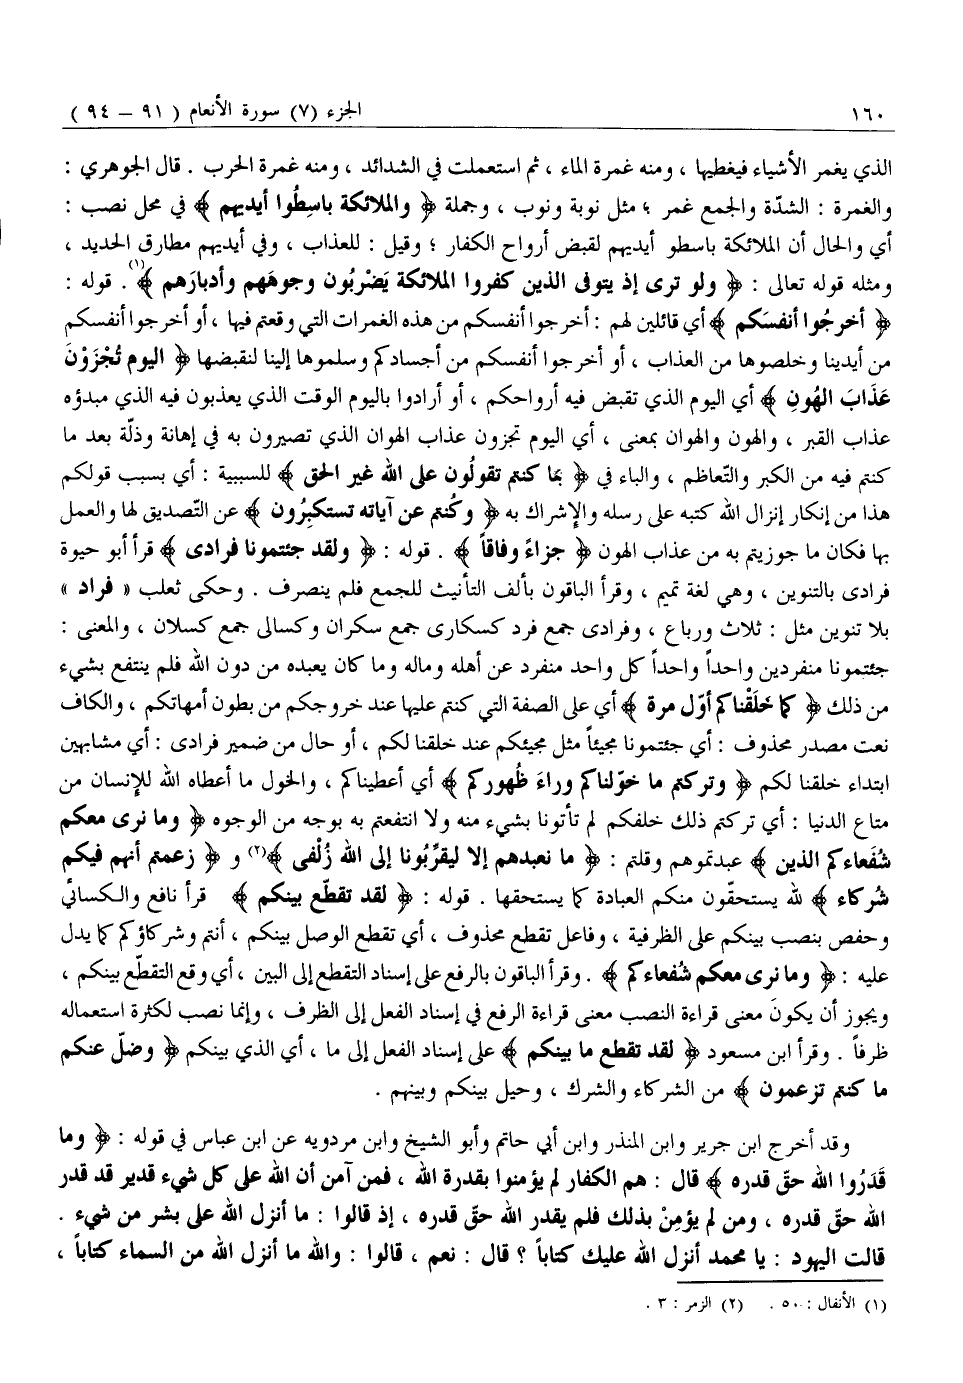 ١٦٠ الجزء (٧) سورة الأنعام ( ٩١ – ٩٤ )
الذي يغمر الأشياء فيغطيها ، ومنه غمرة الماء ، ثم استعملت في الشدائد ، ومنه غمرة الحرب . قال الجوهري :
والغمرة : الشدّة والجمع غمر ؛ مثل نوبة ونوب ، وجملة ﴿ والملائكة باسِطُوا أيديهم ﴾ في محل نصب :
أي والحال أن الملائكة باسطو أيديهم لقبض أرواح الكفار ؛ وقيل : للعذاب ، وفي أيديهم مطارق الحديد ،
ومثله قوله تعالى : ﴿ ولو ترى إذ يتوفى الذين كفروا الملائكة يَضْرِبُون وجوهَهم وأدبارَهم ﴾(١) . قوله :
﴿ أخرجُوا أنفسَكم ﴾ أي قائلين لهم : أخرجوا أنفسكم من هذه الغمرات التي وقعتم فيها ، أو أخرجوا أنفسكم
من أيدينا وخلصوها من العذاب ، أو أخرجوا أنفسكم من أجسادكم وسلموها إلينا لنقبضها ﴿ اليوم تُجْزَوْنَ
عَذَابَ الهُونِ ﴾ أي اليوم الذي تقبض فيه أرواحكم ، أو أرادوا باليوم الوقت الذي يعذبون فيه الذي مبدؤه
عذاب القبر ، والهون والهوان بمعنى ، أي اليوم تجزون عذاب الهوان الذي تصيرون به في إهانة وذلّة بعد ما
كنتم فيه من الكبر والتّعاظم ، والباء في ﴿ بما كنتم تقولُون على الله غير الحق ﴾ للسببية : أي بسبب قولكم
هذا من إنكار إنزال الله كتبه على رسله والإشراك به ﴿ وكُنتم عن آياته تستكبِرُون ﴾ عن التّصديق لها والعمل
بها فكان ما جوزيتم به من عذاب الهون ﴿ جزاءً وفاقاً ﴾ . قوله : ﴿ ولقد جئتمونا فرادى ﴾ قرأ أبو حيوة
فرادى بالتنوين ، وهي لغة تميم ، وقرأ الباقون بألف التأنيث للجمع فلم ينصرف . وحكى ثعلب « فراد »
بلا تنوين مثل : ثلاث ورباع ، وفرادى جمع فرد كسكارى جمع سكران وكسالى جمع كسلان ، والمعنى :
جئتمونا منفردين واحداً واحداً كل واحد منفرد عن أهله وماله وما كان يعبده من دون الله فلم ينتفع بشيء
من ذلك ﴿ كما خَلَقْناكم أوّل مرة ﴾ أي على الصفة التي كنتم عليها عند خروجكم من بطون أمهاتكم ، والكاف
نعت مصدر محذوف : أي جئتمونا مجيئاً مثل مجيئكم عند خلقنا لكم ، أو حال من ضمير فرادى : أي مشابهين
ابتداء خلقنا لكم ﴿ وتركتم ما خوّلناكم وراءَ ظُهوركم ﴾ أي أعطيناكم ، والخول ما أعطاه الله للإنسان من
متاع الدنيا : أي تركتم ذلك خلفكم لم تأتونا بشيء منه ولا انتفعتم به بوجه من الوجوه ﴿ وما نرى معكم
شُفعاءكم الذين ﴾ عبدتموهم وقلتم : ﴿ ما نعبدهم إلا ليقرِّبُونا إلى الله زُلْفى ﴾(٢) و ﴿ زعمتم أنهم فيكم
شُركاء ﴾ لله يستحقّون منكم العبادة كما يستحقها . قوله : ﴿ لقد تقطّع بينكم ﴾ قرأ نافع والكسائي
وحفص بنصب بينكم على الظرفية ، وفاعل تقطع محذوف ، أي تقطع الوصل بينكم ، أنتم وشركاؤكم كما يدل
عليه : ﴿ وما نرى معكم شُفعاءكم ﴾ . وقرأ الباقون بالرفع على إسناد التقطع إلى البين ، أي وقع التقطّع بينكم ،
ويجوز أن يكونَ معنى قراءة النصب معنى قراءة الرفع في إسناد الفعل إلى الظرف ، وإنما نصب لكثرة استعماله
ظرفاً . وقرأ ابن مسعود ﴿ لقد تقطع ما بينكم ﴾ على إسناد الفعل إلى ما ، أي الذي بينكم ﴿ وضلّ عنكم
ما كنتم تزعمون ﴾ من الشركاء والشرك ، وحيل بينكم وبينهم .
وقد أخرج ابن جرير وابن المنذر وابن أبي حاتم وأبو الشيخ وابن مردويه عن ابن عباس في قوله : ﴿ وما
قَدَرُوا الله حقّ قدره ﴾ قال : هم الكفار لم يؤمنوا بقدرة الله ، فمن آمن أن الله على كل شيء قدير قد قدر
الله حقّ قدره ، ومن لم يؤمِنْ بذلك فلم يقدر الله حقّ قدره ، إذ قالوا : ما أنزل الله على بشر من شيء .
قالت اليهود : يا محمد أنزل الله عليك كتاباً ؟ قال : نعم ، قالوا : والله ما أنزل الله من السماء كتاباً ،
(١) الأنفال : ٥٠ . (٢) الزمر : ٣ .